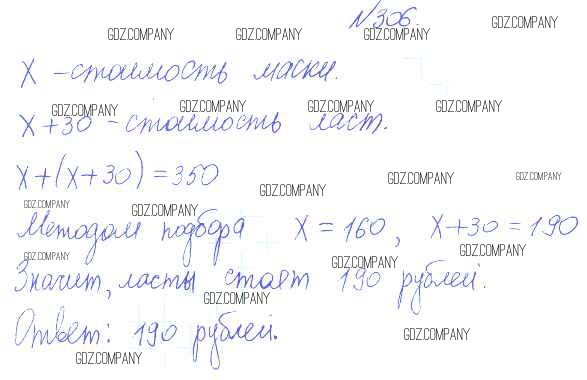 №306.
GDZ.COMPANY GDZ.COMPANY GDZ.COMPANY GDZ.COMPANY
x – стоимость маски.
GDZ.COMPANY GDZ.COMPANY GDZ.COMPANY GDZ.COMPANY
x + 30 – стоимость ласт.
x + (x + 30) = 350
GDZ.COMPANY GDZ.COMPANY GDZ.COMPANY
GDZ.COMPANY GDZ.COMPANY
Методом подбора x = 160, x + 30 = 190
GDZ.COMPANY GDZ.COMPANY GDZ.COMPANY
Значит, ласты стоят 190 рублей.
GDZ.COMPANY
Ответ: 190 рублей.
GDZ.COMPANY
GDZ.COMPANY